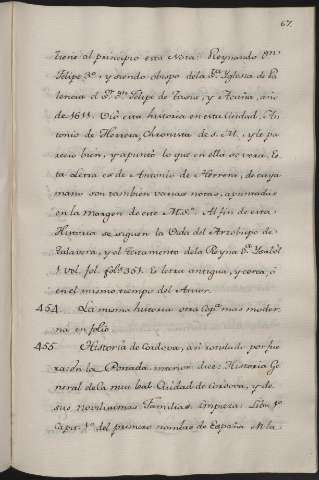 67.
tiene al principio esta Nota: Reynando Dn.
Felipe 3º, y siendo obispo dela Sta. Iglesia de Pa
lencia el Sr. Dn. Felipe de Tasis, y Acuña, año
de 1611. Vió esta historia en esta Ciudad, An
tonio de Herrera, Chronista de S. M., y le pa
recio bien, y apuntó lo que en ella se verá. Es
ta Letra es de Antonio de Herrera, de cuya
mano son tambien varias notas, apuntadas
en la margen de este M.S.º. Al fin de esta
Historia se siguen la Vida del Arzobispo de
Talavera, y el Testamento dela Reyna Dª. Ysabel
1 Vol. fol. folˢ 351. Es letra antigua, y cerca, ó
en el mismo tiempo del Autor.
454 La misma historia otra Copª mas moder
na en folio.
455 Historia de Cordova, asi rotulado por fue
ra: en la Portada interior dice: Historia Ge
neral dela muy leal Ciudad de Cordova, y de
sus novilisimas Familias. Empieza: Libº 1º
Capit. 1º del primero nombre de España. M la-